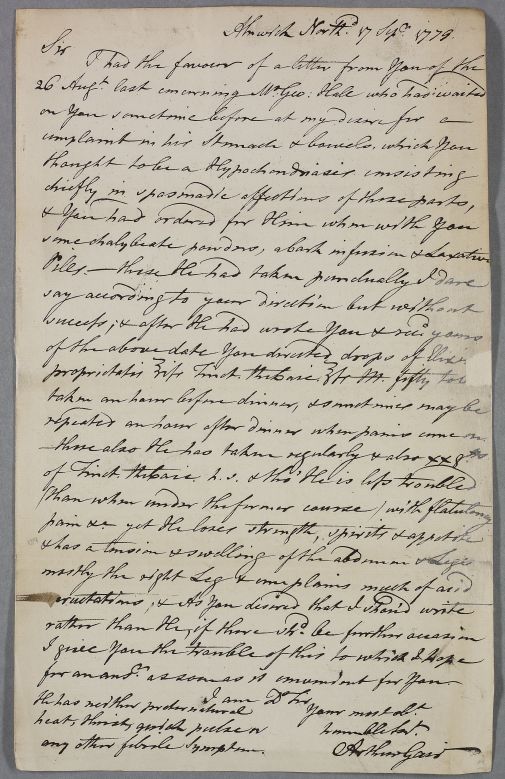 Alnwick North.d 17 Sep.r 1779.
Sir
I had the favour of a letter from You of the
26 Aug.t last concerning Mr Geo: Hall who had waited
on You sometime before at my desire for a
complaint in his Stomach & bowels, which You
thought to be a Hypochondriasis consisting
chiefly in spasmodic affections of those parts,
& You had ordered for Him when with You
some chalybeate powders, a bark infusion & Laxative
Pills. – these He had taken punctually I dare
say according to your direction but without
success; & after He had wrote You & rec.d yours
of the above date You directed drops of Elixir
proprietatis Tinct. thebaic M. fifty to be
taken an hour before dinner, & sometimes may be
repeated an hour after dinner when pains come on
these also He has taken regularly & also
of Tinct. thebaic h.s. & tho' He is less troubled
(than when under the former course) with flatulency
pain &c yet He loses strength, spirits & appetite
& has a tension & swelling of the abdomen & Legs
mostly the right Leg & complains much of acid
eructations, & As You desired that I should write
rather than He, if there sh.d be further occasion
I give You the trouble of this to which I hope
for an ans.r as soon as is convenient for You
I am D.r Sir
Your most ob.t
humble Ser.t
Arthur Gair
He has neither preternatural
heat, thirst, quick pulse or
any other febrile symptom.